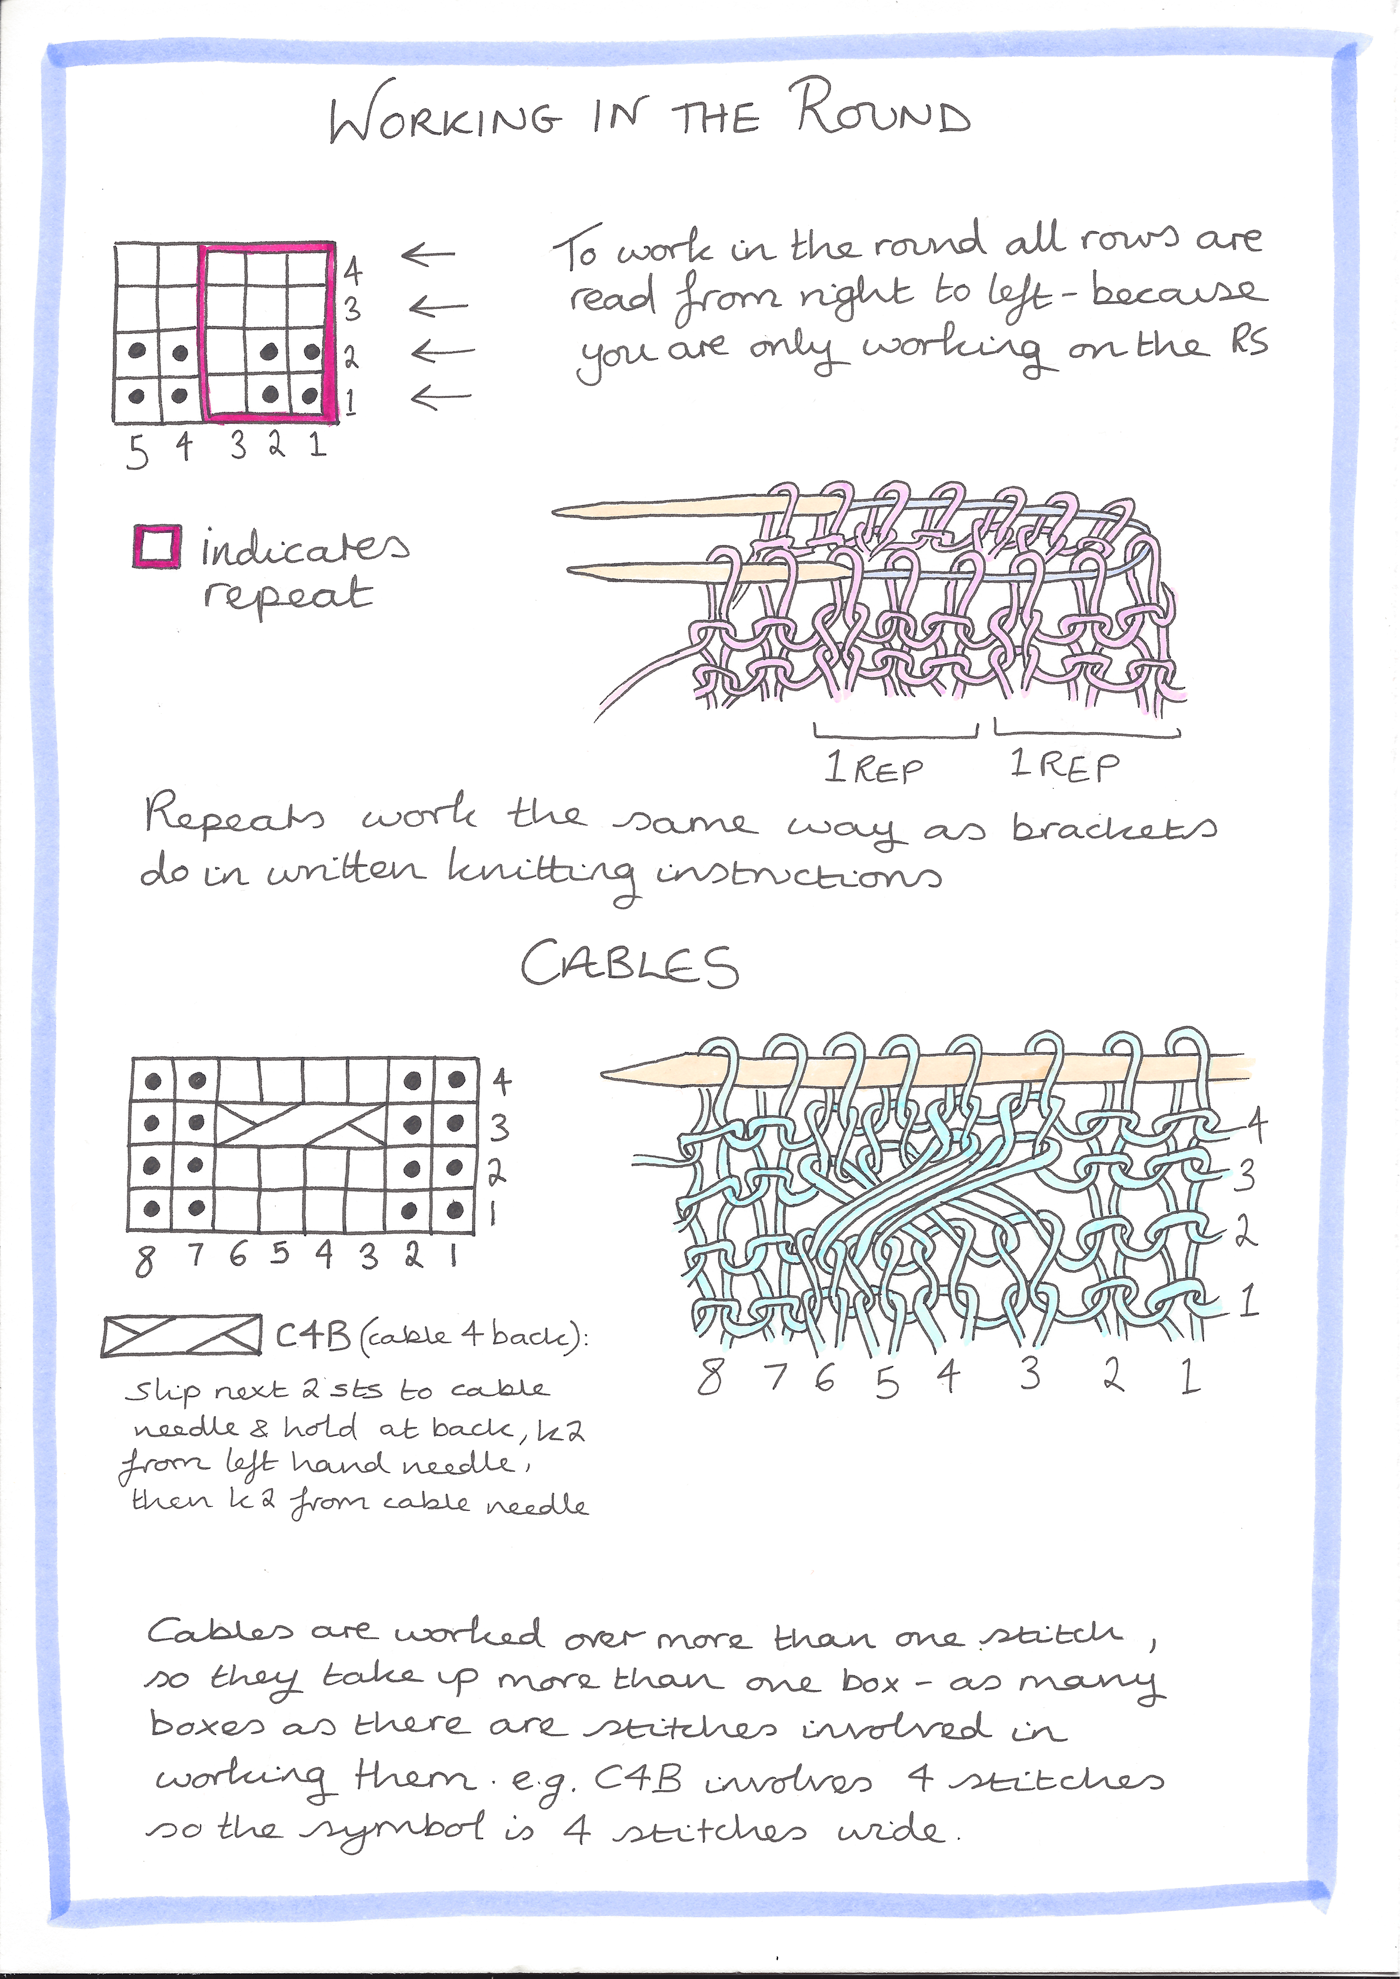 WORKING IN THE ROUND
To work in the round all rows are
read from right to left - because
you are only working on the RS
4
3
2
1
5 4 3 2 1
indicates
repeat
1 REP 1 REP
Repeats work the same way as brackets
do in written knitting instructions
CABLES
4
3
2
1
8 7 6 5 4 3 2 1
C4B (cable 4 back):
slip next 2 sts to cable
needle & hold at back, k2
from left hand needle,
then k2 from cable needle
4
3
2
1
8 7 6 5 4 3 2 1
Cables are worked over more than one stitch,
so they take up more than one box - as many
boxes as there are stitches involved in
working them. e.g. C4B involves 4 stitches
so the symbol is 4 stitches wide.